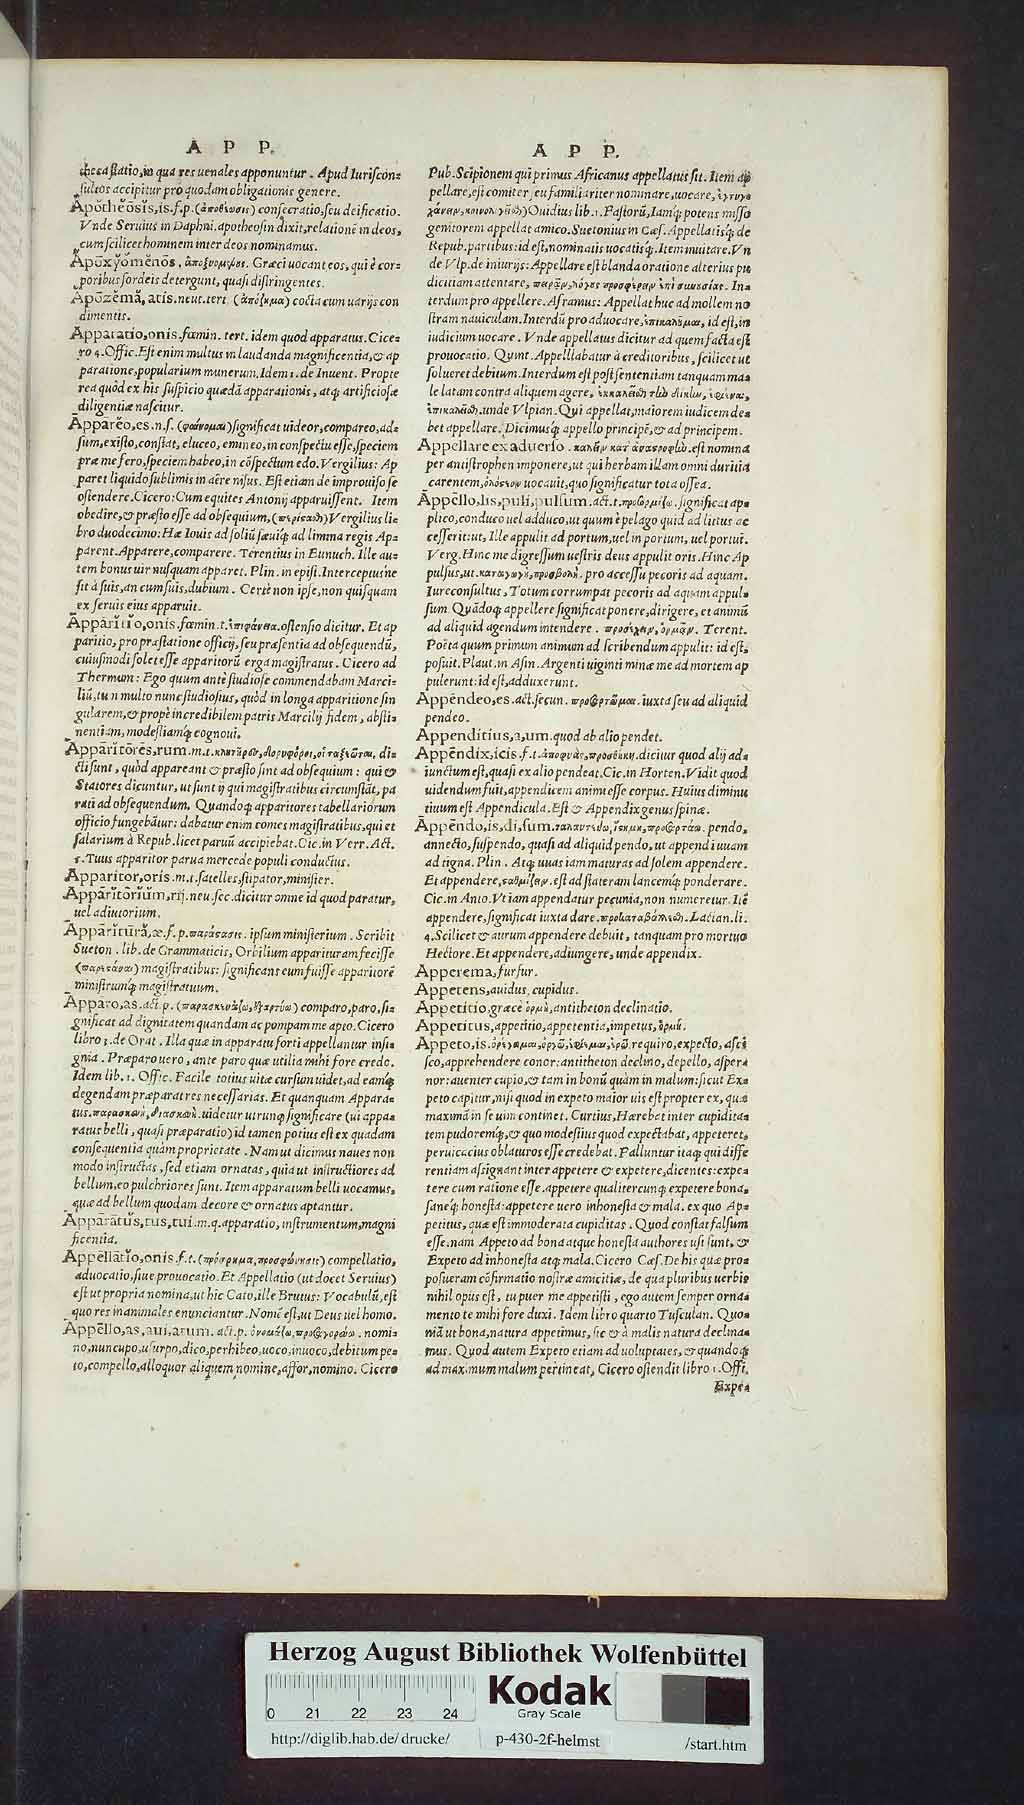 A P P.
thecastatio, in qua res uenales apponuntur. Apud Iuriscon-
sultos accipitur pro quodam obligationis genere.
Apŏthĕōsĭs, is. f. p. (ἀποθέωσις) consecratio, seu deificatio.
Vnde Seruius in Daphni. apotheosin dixit, relationē in deos,
cum scilicet hominem inter deos nominamus.
Apŏxyŏmĕnŏs, ἀποξυόμενος. Græci uocant eos, qui è cor-
poribus sordeis detergunt, quasi distringentes.
Apŏzĕmă, atis. neut. tert. (ἀπόζεμα) cocta cum uarijs con
dimentis.
Apparatio, onis. fœmin. tert. idem quod apparatus. Cice-
ro 4. Offic. Est enim multus in laudanda magnificentia, & ap
paratione, popularium munerum. Idem 1. de Inuent. Propte
rea quòd ex his suspicio quædā apparationis, atq; artificiosæ
diligentiæ nascitur.
Appārĕo, es. n. s. (φαίνομαι) significat uideor, compareo, ad-
sum, existo, constat, eluceo, emineo, in conspectu esse, speciem
præ me fero, speciem habeo, in cōspectum edo. Vergilius: Ap
paret liquido sublimis in aëre nisus. Est etiam de improuiso se
ostendere. Cicero: Cum equites Antonij apparuissent. Item
obedire, & præsto esse ad obsequium, Vergilius li-
bro duodecimo: Hæ Iouis ad soliū sæuiq; ad limma regis Ap-
parent. Apparere, comparere. Terentius in Eunuch. Ille au-
tem bonus uir nusquam apparet. Plin. in epist. Interceptusne
sit à suis, an cum suis, dubium. Certè non ipse, non quisquam
ex seruis eius apparuit.
Appārĭtĭo, onis. fœmin. t. ἐπιφάνεια. ostensio dicitur. Et ap
paritio, pro præstatione officij, seu præsentia ad obsequendū,
cuiusmodi solet esse apparitorū erga magistratus. Cicero ad
Thermum: Ego quum antè studiose commendabam Marci-
liū, tu n multo nunc studiosius, quòd in longa apparitione sin
gularem, & propè incredibilem patris Marcilij fidem, absti-
nentiam, modestiamq; cognoui.
Appārĭtōrēs, rum. m. t. di-
cti sunt, quòd appareant & præsto sint ad obsequium: qui &
Statores dicuntur, ut sunt ij qui magistratibus circumstāt, pa
rati ad obsequendum. Quandoq; apparitores tabellariorum
officio fungebātur: dabatur enim comes magistratibus, qui et
salarium à Repub. licet paruū accipiebat. Cic. in Verr. Act.
5. Tuus apparitor parua mercede populi conductus.
Apparitor, oris. m. t. satelles, stipator, minister.
Appārĭtōrĭum, rij. neu. sec. dicitur omne id quod paratur,
uel adiutorium.
Appārĭtūră, æ. f. p. παράστασις. ipsum ministerium. Scribit
Sueton. lib. de Grammaticis, Orbilium apparituram fecisse
magistratibus: significans eum fuisse apparitorē
ministrumq; magistratuum.
Appăro, as. act. p. (παρασκευάζω, ἐξαρτύω) comparo, paro, si-
gnificat ad dignitatem quandam ac pompam me apto. Cicero
libro 1. de Orat. Illa quæ in apparatu forti appellantur insi-
gnia. Præparo uero, ante paro quæ utilia mihi fore credo.
Idem lib. 1. Offic. Facile totius uitæ cursum uidet, ad eamq;
degendam præparat res necessarias. Et quanquam Appara-
tus. παρασκευὴ, διασκευὴ. uidetur utrunq; significare (ui appa-
ratus belli, quasi præparatio) id tamen potius est ex quadam
consequentia quàm proprietate. Nam ut dicimus naues non
modo instructas, sed etiam ornatas, quia ut instructiores ad
bellum, eo pulchriores sunt. Item apparatum belli uocamus,
quæ ad bellum quodam decore & ornatus aptantur.
Appărātŭs, tus, tui. m. q. apparatio, instrumentum, magni
ficentia.
Appēllātĭo, onis f. t. (πρόσρημα, προσφώνησις) compellatio,
aduocatio, siue prouocatio. Et Appellatio (ut docet Seruius)
est ut propria nomina, ut hic Cato, ille Brutus: Vocabulū, est
quo res inanimales enunciantur. Nomē est, ut Deus uel homo.
Appēllo, as, aui, atum. act. p. ὀνομάζω, προσαγορεύω. nomi-
no, nuncupo, usurpo, dico, perhibeo, uoco, inuoco, debitum pe-
to, compello, alloquor aliquem nomine, affor, nomino. Cicero
A P P.
Pub. Scipionem qui primus Africanus appellatus sit. Item ap
pellare, est comiter seu familiariter nominare, uocare,
Ouidius lib. 1. Fastorū, Iamq; potens misso
genitorem appellat amico. Suetonius in Cæs. Appellatisq; de
Repub. partibus: id est, nominatis uocatisq;. Item inuitare. Vn
de Vlp. de iniurijs: Appellare est blanda oratione alterius pu
dicitiam attentare, In-
terdum pro appellere. Aframus: Appellat huc ad mollem no
stram nauiculam. Interdū pro aduocare, ἐπικαλοῦμαι, id est, in
iudicium uocare. Vnde appellatus dicitur ad quem facta est
prouocatio. Quint. Appelllabatur à creditoribus, scilicet ut
solueret debitum. Interdum est post sententiam tanquam ma-
le latam contra aliquem agere,
unde Vlpian. Qui appellat, maiorem iudicem de-
bet appellare. Dicimusq; appello principē, & ad principem.
Appellare ex aduerso. καλεῖν κατ' ἀναστροφὼ. est nomina
per antistrophen imponere, ut qui herbam illam omni duritia
carentem, uocauit, quo significatur tota ossea.
Āppēllo, lis, puli, pulsum. act. t. προσορμίζω. significat ap-
plico, conduco uel adduco, ut quum è pelago quid ad littus ac
cesserit: ut, Ille appulit ad portum, uel in portum, uel portui.
Verg. Hinc me digressum uestris deus appulit oris. Hinc Ap
pulsus, ut καταγωγὴ, προσβολὴ. pro accessu pecoris ad aquam.
Iureconsultus, Totum corrumpat pecoris ad aquam appul-
sum. Quādoq; appellere significat ponere, dirigere, et animū
ad aliquid agendum intendere. προσέχειν, ὁρμᾷν. Terent.
Poëta quum primum animum ad scribendum appulit: id est,
posuit. Plaut. in Asin. Argenti uiginti minæ me ad mortem ap
pulerunt: id est, adduxerunt.
Appēndeo, es. act. secun. προσαρτῶμαι. iuxta seu ad aliquid
pendeo.
Appenditius, a, um. quod ab alio pendet.
Appēndix, icis f. t. ἀποφυὰς, προσθήκη. dicitur quod alij ad-
iunctum est, quasi ex alio pendeat. Cic. in Horten. Vidit quod
uidendum fuit, appendicem animi esse corpus. Huius diminu
tiuum est Appendicula. Est & Appendix genus spinæ.
Āppēndo, is, di, sum. pendo,
annecto, suspendo, quasi ad aliquid pendo, ut appendi uuam
ad tigna. Plin. Atq; uuas iam maturas ad solem appendere.
Et appendere, σταθμίζειν. est ad stateram lancemq; ponderare.
Cic. in Anto. Vt iam appendatur pecunia, non numeretur. Itē
appendere, significat iuxta dare. Lactan. li.
4. Scilicet & aurum appendere debuit, tanquam pro mortuo
Hectore. Et appendere, adiungere, unde appendix.
Apperema, furfur.
Appetens, auidus, cupidus.
Appetitio, græcè ὁρμὴ, antitheton declinatio.
Appetitus, appetitio, appetentia, impetus, ὁρμὴ.
Appeto, is. ὀρέγομαι, requiro, expecto, asci
sco, apprehendere conor: antitheton declino, depello, asper-
nor: auenter cupio, & tam in bonū quàm in malum: sicut Ex-
peto capitur, nisi quod in expeto maior uis est propter ex, quæ
maximā in se uim continet. Curtius, Hærebat inter cupidita-
tem pudoremq;, & quo modestius quod expectabat, appeteret,
peruicacius oblaturos esse credebat. Palluntur itaq; qui diffe
rentiam assignant inter appetere & expetere, dicentes: expe-
tere cum ratione esse. appetere qualitercunq; expetere bona-
saneq; honesta: appetere uero inhonesta & mala. ex quo Ap-
petitus, quæ est immoderata cupiditas. Quod constat falsum
esse. nam Appeto ad bona atque honesta authores usi sunt, &
Expeto ad inhonesta atq; mala. Cicero Cæs. De his quæ pro-
posueram cōfirmatio nostræ amicitiæ, de qua pluribus uerbis
nihil opus est, tu puer me appetisti, ego autem semper orna-
mento te mihi fore duxi. Idem libro quarto Tusculan. Quo-
niā ut bona, natura appetimus, sic & à malis natura declina-
mus. Quod autem Expeto etiam ad uoluptates, & quandoq;
ad maximum malum pertineat, Cicero ostendit libro 1. Offi.
Expe-
Herzog August Bibliothek Wolfenbüttel
0 21 22 23 24
Kodak
Gray Scale
http://diglib.hab.de/drucke/ p-430-2f-helmst /start.htm